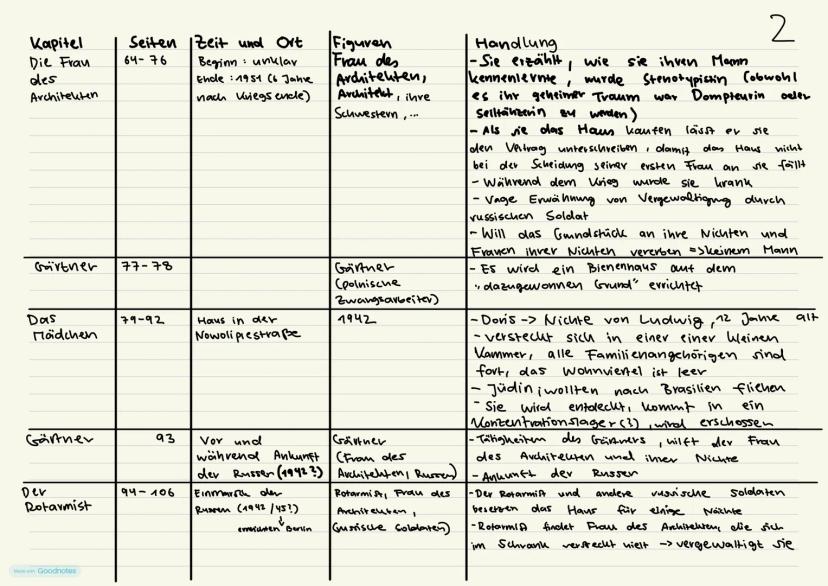 2
Kapitel Seiten Zeit und Ort Figuren Handlung
Die Frau des Architekten
64-76
Beginn: unklar
Ende: 1951 (6 Jahre
nach Kriegsende)
Frau des
Architekten,
Architekt, ihre
Schwestern, ...
- Sie erzählt, wie sie ihren Mann
kennenlernte, wurde Stenotypistin (obwohl
es ihr geheimer Traum war Dompteurin oder
Seiltänzerin zu werden)
- Als sie das Haus kaufen lässt er sie
den Vertrag unterschreiben, damit das Haus nicht
bei der Scheidung seiner ersten Frau an sie fällt
- Während dem Krieg wurde sie krank
- Vage Erwähnung von Vergewaltigung durch
russischen Soldat
- Will das Grundstück an ihre Nichten und
Frauen ihrer Nichten vererben => keinem Mann
Gärtner
77-78
Gärtner
(polnische
Zwangsarbeiter)
- Es wird ein Bienenhaus auf dem
"dazugewonnen Grund" errichtet
Das
Mädchen
79-92
Haus in der
Nowolipiestraße
1942
- Doris -> Nichte von Ludwig, 12 Jahre alt
- versteckt sich in einer einer kleinen
Kammer, alle Familienangehörigen sind
fort, das Wohnviertel ist leer
- Jüdin; wollten nach Brasilien fliehen
- Sie wird entdeckt, kommt in ein
Konzentrationslager (?), wird erschossen
Gärtner
93
Vor und
während Ankunft
der Russen (1942?)
Gärtner
(Frau des
Architekten, Russen)
- Tätigkeiten des Gärtners, hilft der Frau
des Architekten und ihrer Nichte
- Ankunft der Russen
Der
Rotarmist
94-106
Einmarsch der
Russen (1942/45?)
erreichten Berlin
Rotarmist, Frau des
Architekten,
(russische Soldaten)
- Der Rotarmist und andere russische Soldaten
besetzen das Haus für einige Nächte
- Rotarmist findet Frau des Architekten, die sich
im Schrank versteckt hielt -> vergewaltigt sie
Made with Goodnotes